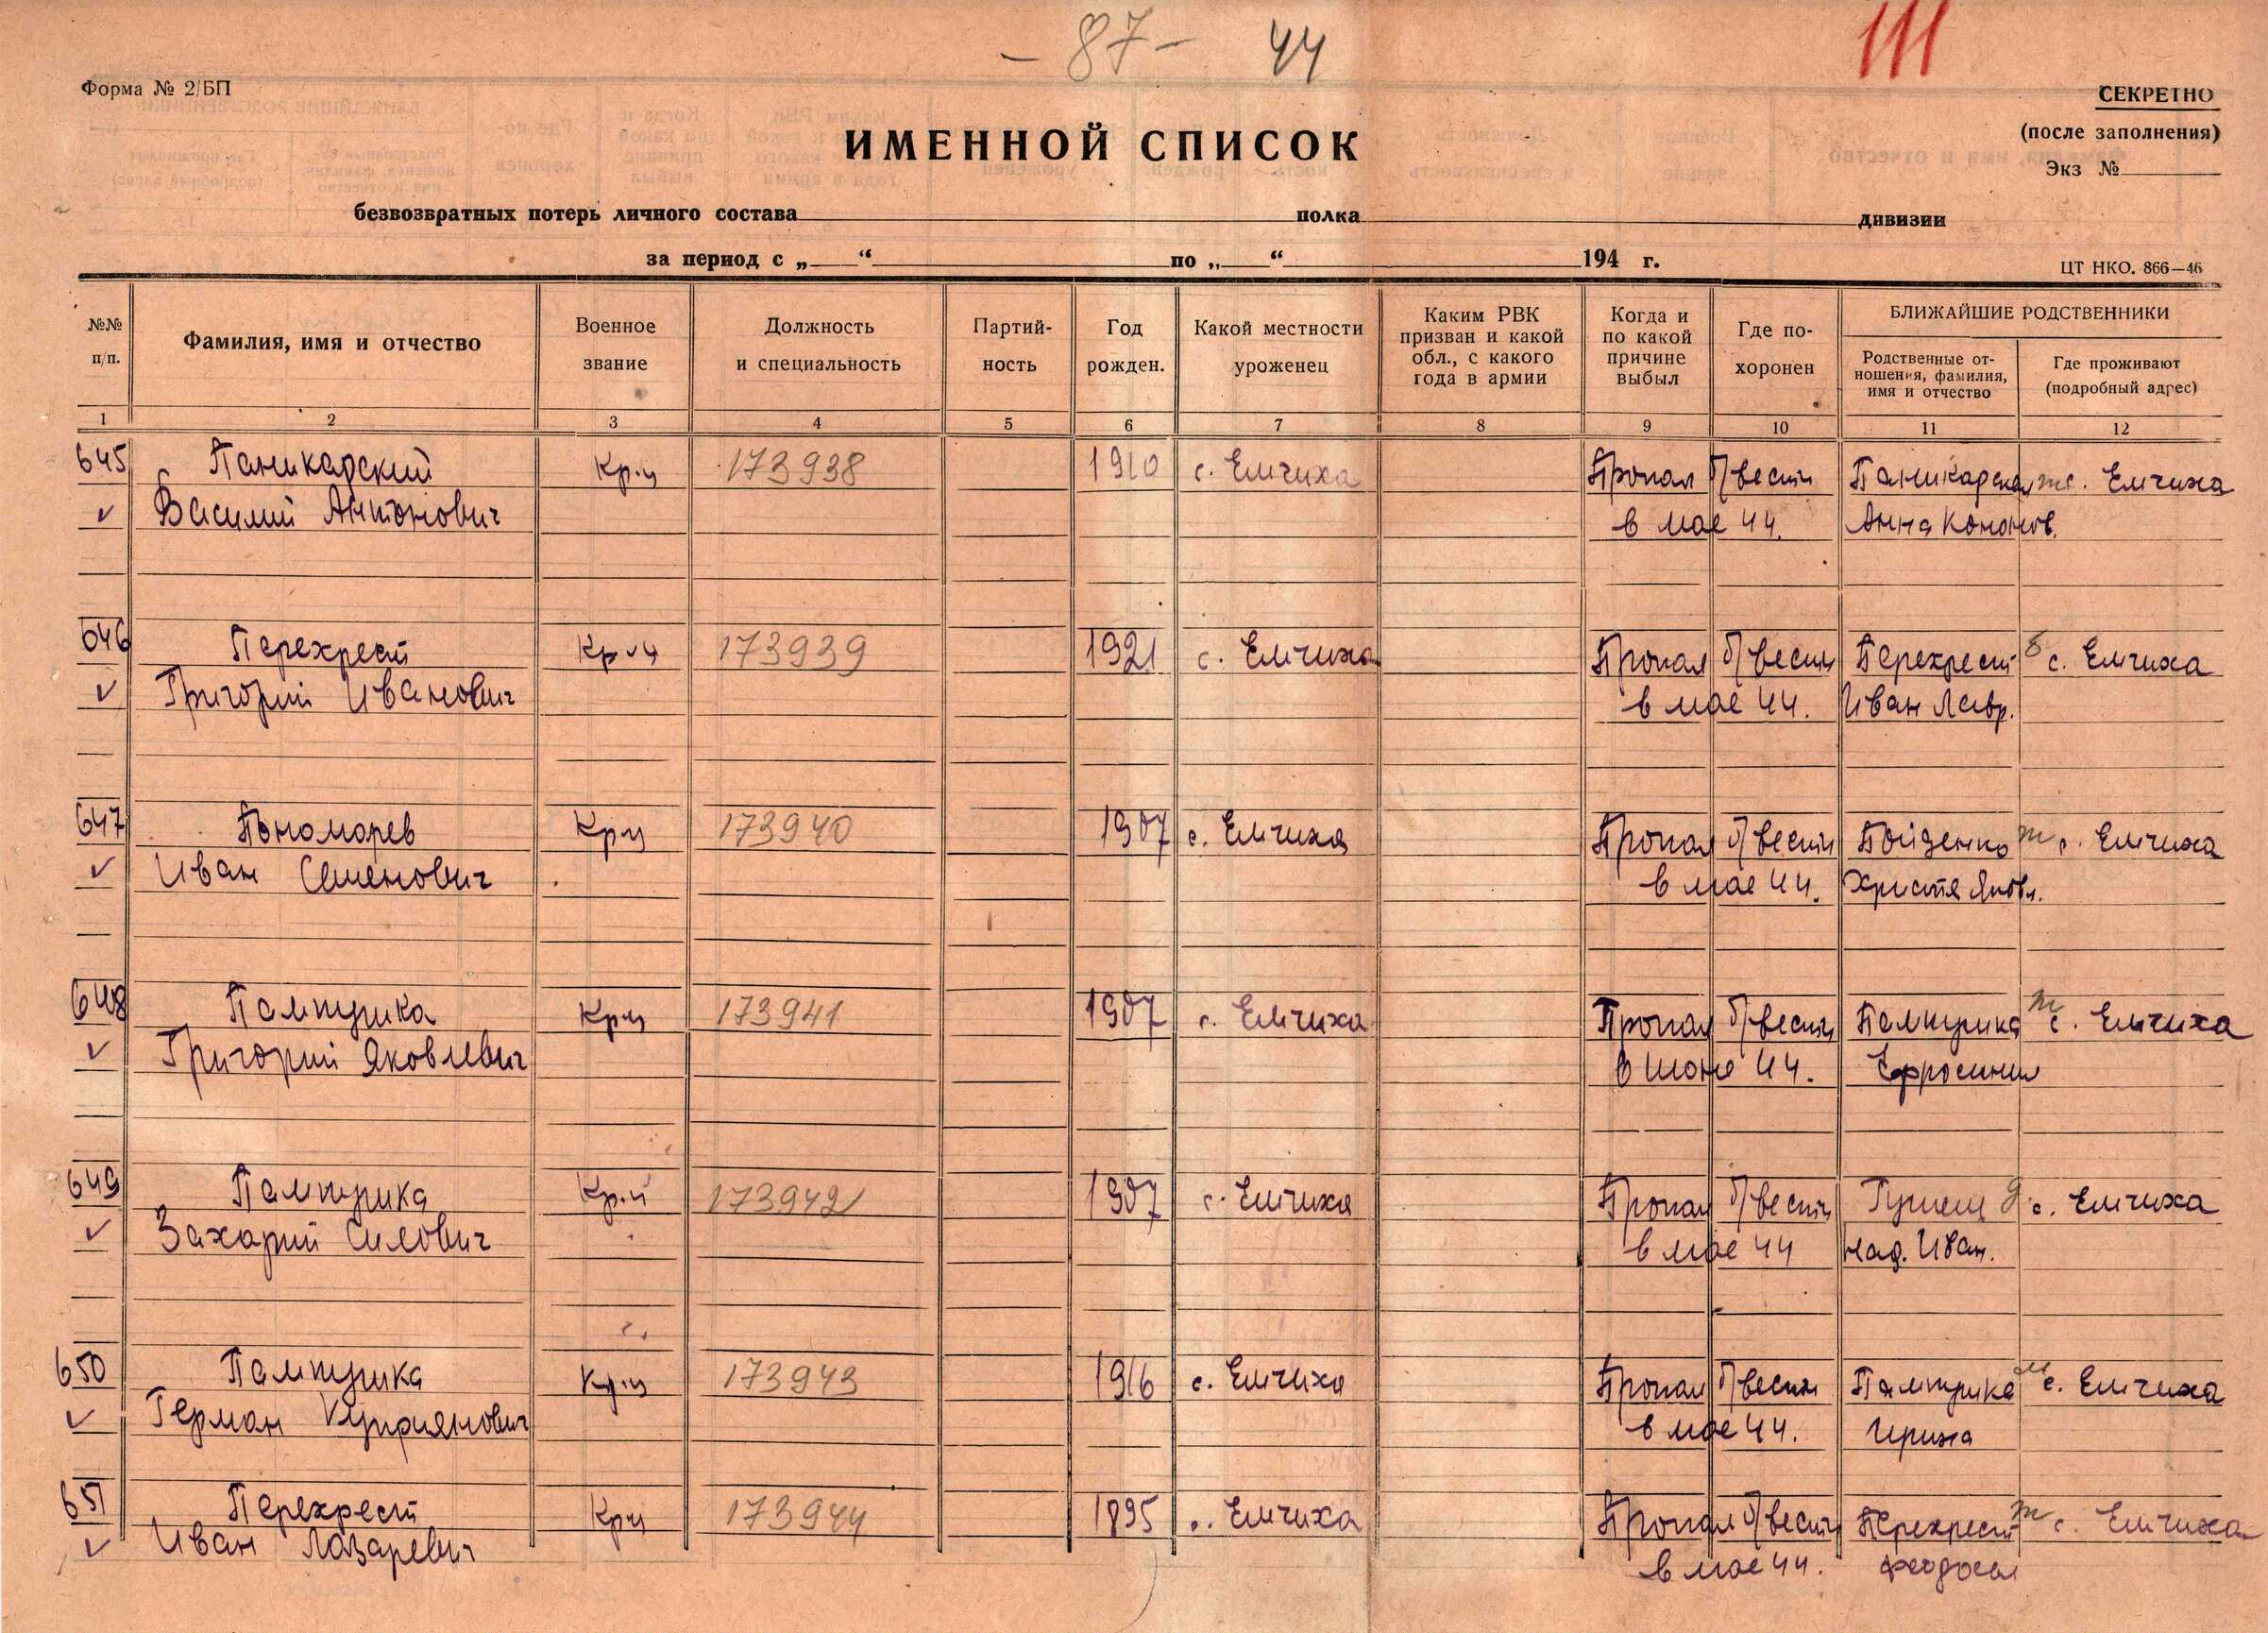 - 87 - 44
111
Форма № 2/БП
СЕКРЕТНО
(после заполнения)
Экз №
ИМЕННОЙ СПИСОК
безвозвратных потерь личного состава полка дивизии
за период с „ “ по „ “ 194 г.
ЦТ НКО. 866—46
№№ п/п.
Фамилия, имя и отчество
Военное звание
Должность и специальность
Партий-ность
Год рожден.
Какой местности уроженец
Каким РВК призван и какой обл., с какого года в армии
Когда и по какой причине выбыл
Где по-хоронен
БЛИЖАЙШИЕ РОДСТВЕННИКИ
Родственные от-ношения, фамилия, имя и отчество
Где проживают (подробный адрес)
1 2 3 4 5 6 7 8 9 10 11 12
645 Паникарский Кр-ц 173938 1910 с. Емчиха Пропал б/вести Паникарская ж с. Емчиха
Василий Антонович в мае 44. Анна Кононов.
646 Перехрест Кр-ц 173939 1921 с. Емчиха Пропал б/вести Перехрест б с. Емчиха
Григорий Иванович в мае 44. Иван Лавр.
647 Пономорев Крц 173940 1907 с. Емчиха Пропал б/вести ж с. Емчиха
Иван Семенович в мае 44. Христя Яковл.
648 Пампушка Крц 173941 1907 с. Емчиха Пропал б/вести Пампушка ж с. Емчиха
Григорий Яковлевич в июне 44. Ефросиния
649 Пампушка Кр.ц 173942 1907 с. Емчиха Пропал б/вести с. Емчиха
Захарий Силович в мае 44 Над. Иван.
650 Пампушка Кр.ц 173943 1916 с. Емчиха Пропал б/вести Пампушка м с. Емчиха
Герман Куприянович в мае 44. Ирина
651 Перехрест Крц 173944 1895 с. Емчиха Пропал б/вести Перехрест ж с. Емчиха
Иван Лазаревич в мае 44. Феодосия